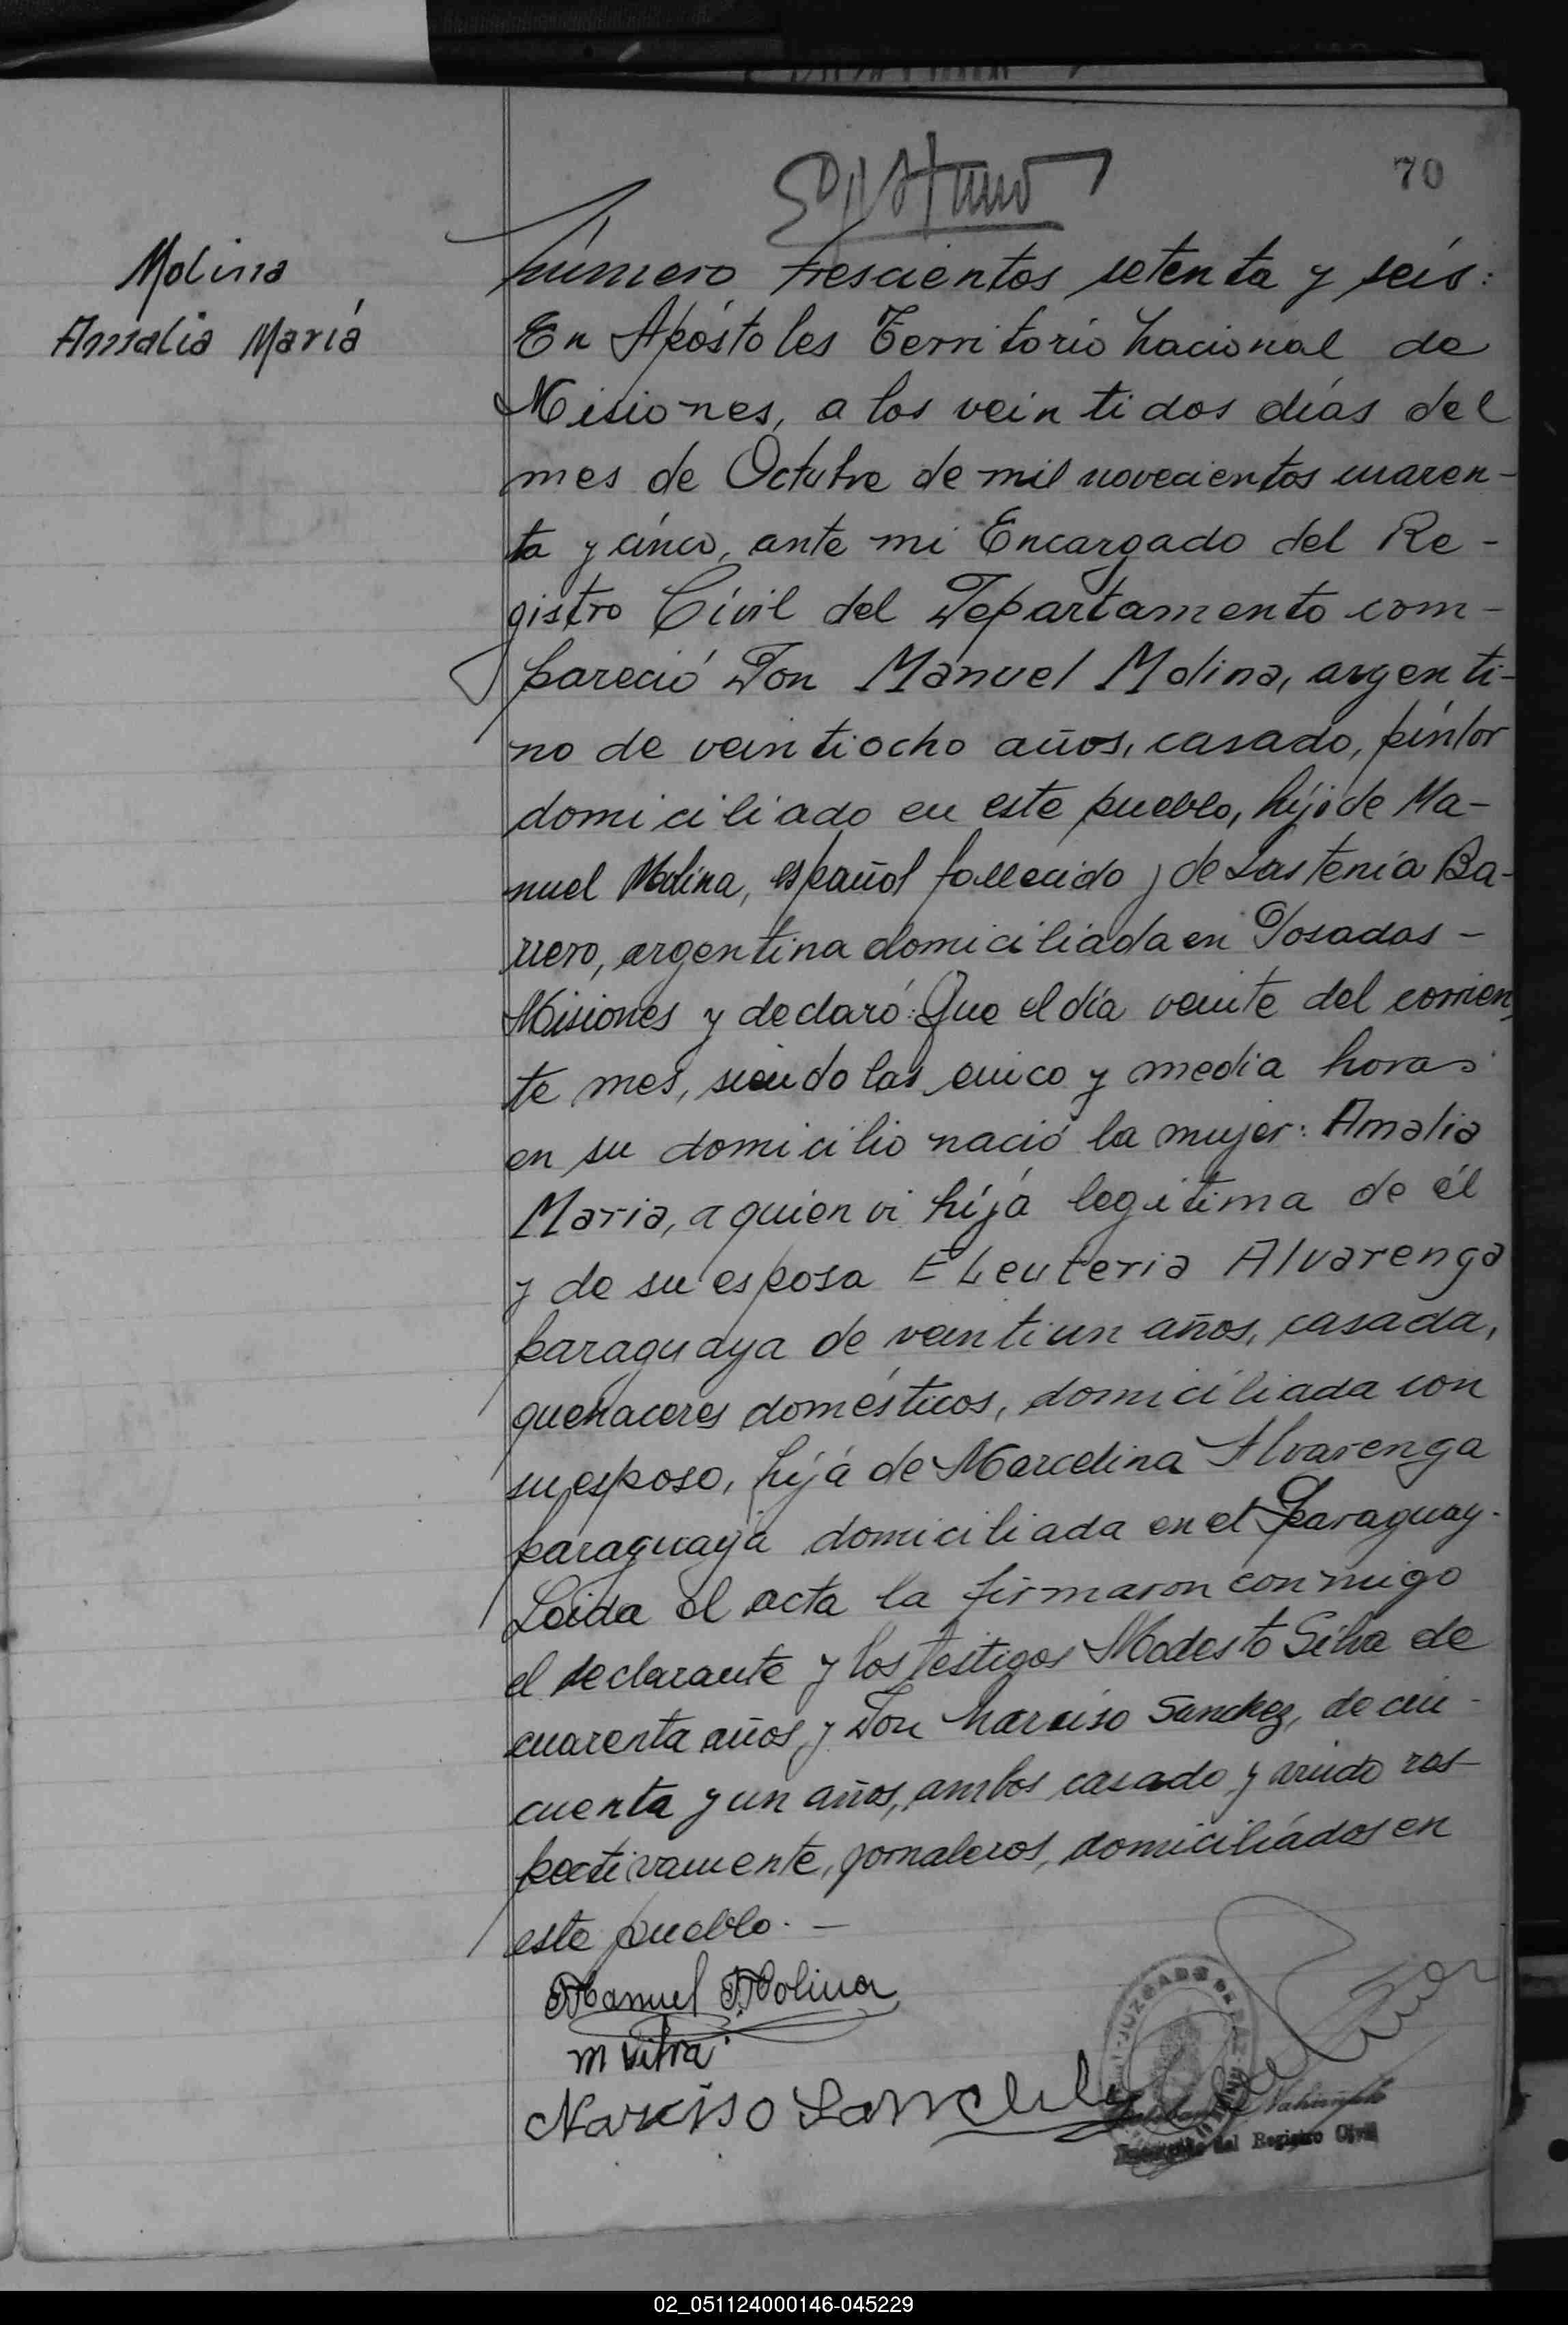 70
Molina
Amalia María
Número trescientos setenta y seis:
En Apóstoles Territorio Nacional de
Misiones, a los veintidos días del
mes de Octubre de mil novecientos cuaren-
ta y cinco, ante mi Encargado del Re-
gistro Civil del Departamento com-
pareció Don Manuel Molina, argenti-
no de veintiocho años, casado, pintor
domiciliado en este pueblo, hijo de Ma-
nuel Molina, español fallecido y de Lastenia Ba-
rrero, argentina domiciliada en Posadas -
Misiones y declaró: Que el día veinte del corrien
te mes, siendo las cinco y media horas
en su domicilio nació la mujer: Amalia
Maria, a quien vi hija legitima de él
y de su esposa Eleuteria Alvarenga
paraguaya de veintiun años, casada,
quehaceres domésticos, domiciliada con
su esposo, hija de Marcelina Alvarenga
paraguaya domiciliada en el Paraguay.
Leida el acta la firmaron conmigo
el declarante y los testigos Modesto Silva de
cuarenta años y Don Narciso Sanchez, de cin-
cuenta y un años, ambos casado y viudo res-
pectivamente, jornaleros, domiciliados en
este pueblo. -
Manuel Molina
M Silva
Narciso Sanchez
JUZGADO DE PAZ
Encargado del Registro Civil
02_051124000146-045229